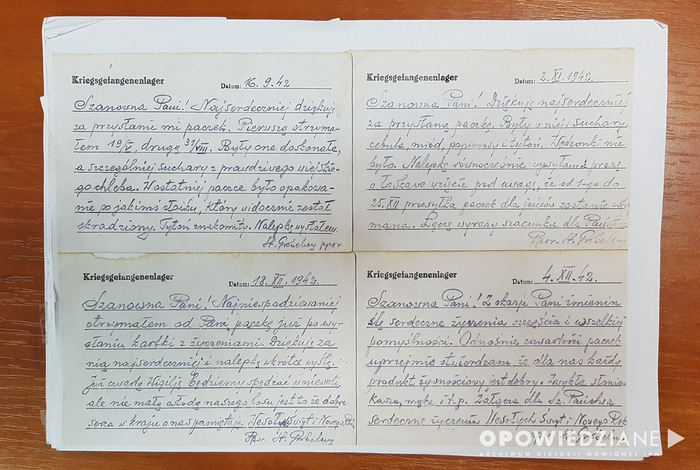 Kriegsgefangenenlager
Datum: 16.9.42
Szanowna Pani! Najserdeczniej dziękuję
za przysłanie mi paczek. Pierwszą otrzyma-
łem 19/V, drugą 31/VIII. Były one doskonałe,
a szczególniej suchary z prawdziwego wiejskie-
go chleba. W ostatniej paczce było opakowa-
nie po jakimś słoiku, który widocznie został
skradziony. Tytoń znakomity. Nalepkę wysłałem.
St. ppor.
Kriegsgefangenenlager
Datum: 2.XI.194
Szanowna Pani! Dziękuję najserdeczniej
za przysłaną paczkę. Były w niej: suchary,
cebula, miód, papierosy i tytoń. nie
było. Nalepkę równocześnie wysyłam i proszę
o łaskawe wzięcie pod uwagę, że od 1-go do
25.XII przesyłka paczek dla jeńców zostanie
mana. Łączę wyrazy szacunku dla
Ppor. St.
Kriegsgefangenenlager
Datum: 18.XII.1942
Szanowna Pani! Najniespodziewaniej
otrzymałem od Pani paczkę już po wy-
słaniu kartki z życzeniami. Dziękuję za
nią najserdeczniej i nalepkę wkrótce wyślę.
Już czwartą Wigilię będziemy spędzać w niewoli,
ale nie małą osłodą naszego losu jest to że dobre
serca w kraju o nas pamiętają. Wesołych Świąt i Nowego Roku
Ppor. St.
Kriegsgefangenenlager
Datum: 4.XII.42
Szanowna Pani! Z okazji Pani imienin
ślę serdeczne życzenia szczęścia i wszelkiej
pomyślności. Odnośnie zawartości paczek
uprzejmie stwierdzam, że dla nas każdy
produkt żywnościowy jest dobry: zwykle słonina,
kasza, mąka i t.p. dla Sz.
serdeczne życzenia Wesołych Świąt i Nowego Roku
OPOWIEDZIANE
ARCHIWUM HISTORII MÓWIONEJ